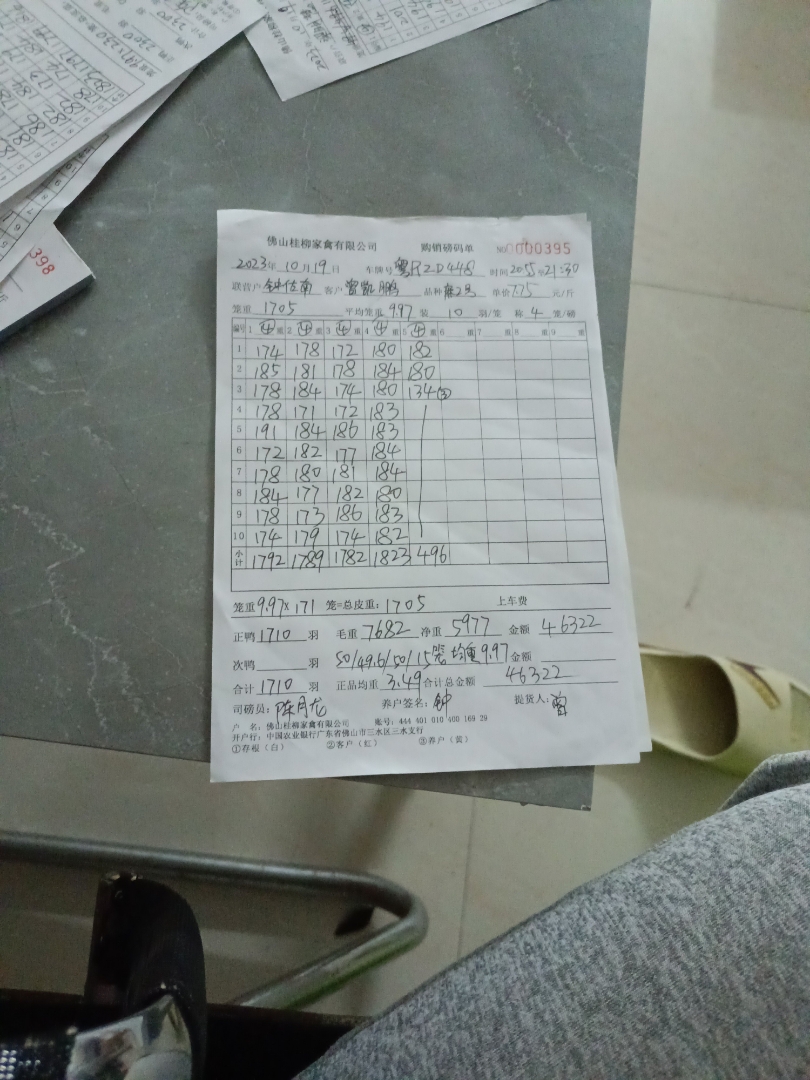 佛山桂柳家禽有限公司 购销磅码单 NO 0000395
2023年10月19日 车牌号 粤R2D448 时间 2055至21:30
联营户 钟佐南 客户 曾凯鹏 品种 单价 7.75 元/斤
笼重 1705 平均笼重 9.97 装 10 羽/笼 称 4 笼/磅
编号 1 ④ 重 2 ④ 重 3 ④ 重 4 ④ 重 5 ④ 重 6 重 7 重 8 重 9 重
1 174 178 172 180 182
2 185 181 178 184 180
3 178 184 174 180 134③
4 178 171 172 183
5 191 184 186 183
6 172 182 177 184
7 178 180 181 184
8 184 177 182 180
9 178 173 186 183
10 174 179 174 182
小计 1792 1789 1782 1823 496
笼重 9.97× 171 笼=总皮重: 1705 上车费
正鸭 1710 羽 毛重 7682 净重 5977 金额 46322
次鸭 羽 50/49.6/50/15笼 均重9.97 金额
合计 1710 羽 正品均重 3.49 合计总金额 46322
司磅员: 陈月龙 养户签名: 钟 提货人: 曾
户 名: 佛山桂柳家禽有限公司 账号: 444 401 010 400 169 29
开户行: 中国农业银行广东省佛山市三水区三水支行
①存根(白) ②客户(红) ③养户(黄)
398